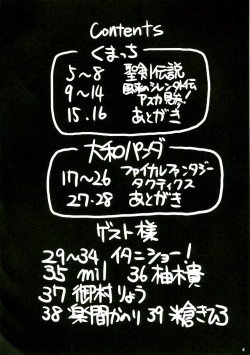 Contents
くまっち
5～8 聖剣伝説
9～14 風来のシレン外伝
アスカ見参!
15.16 あとがき
大和パンダ
17～26 ファイナルファンタジー
タクティクス
27.28 あとがき
ゲスト様
29～34 イタニショー!
35 mil 36 柚木貴
37 御村りょう
38 楽間かのり 39 米倉きひろ
4